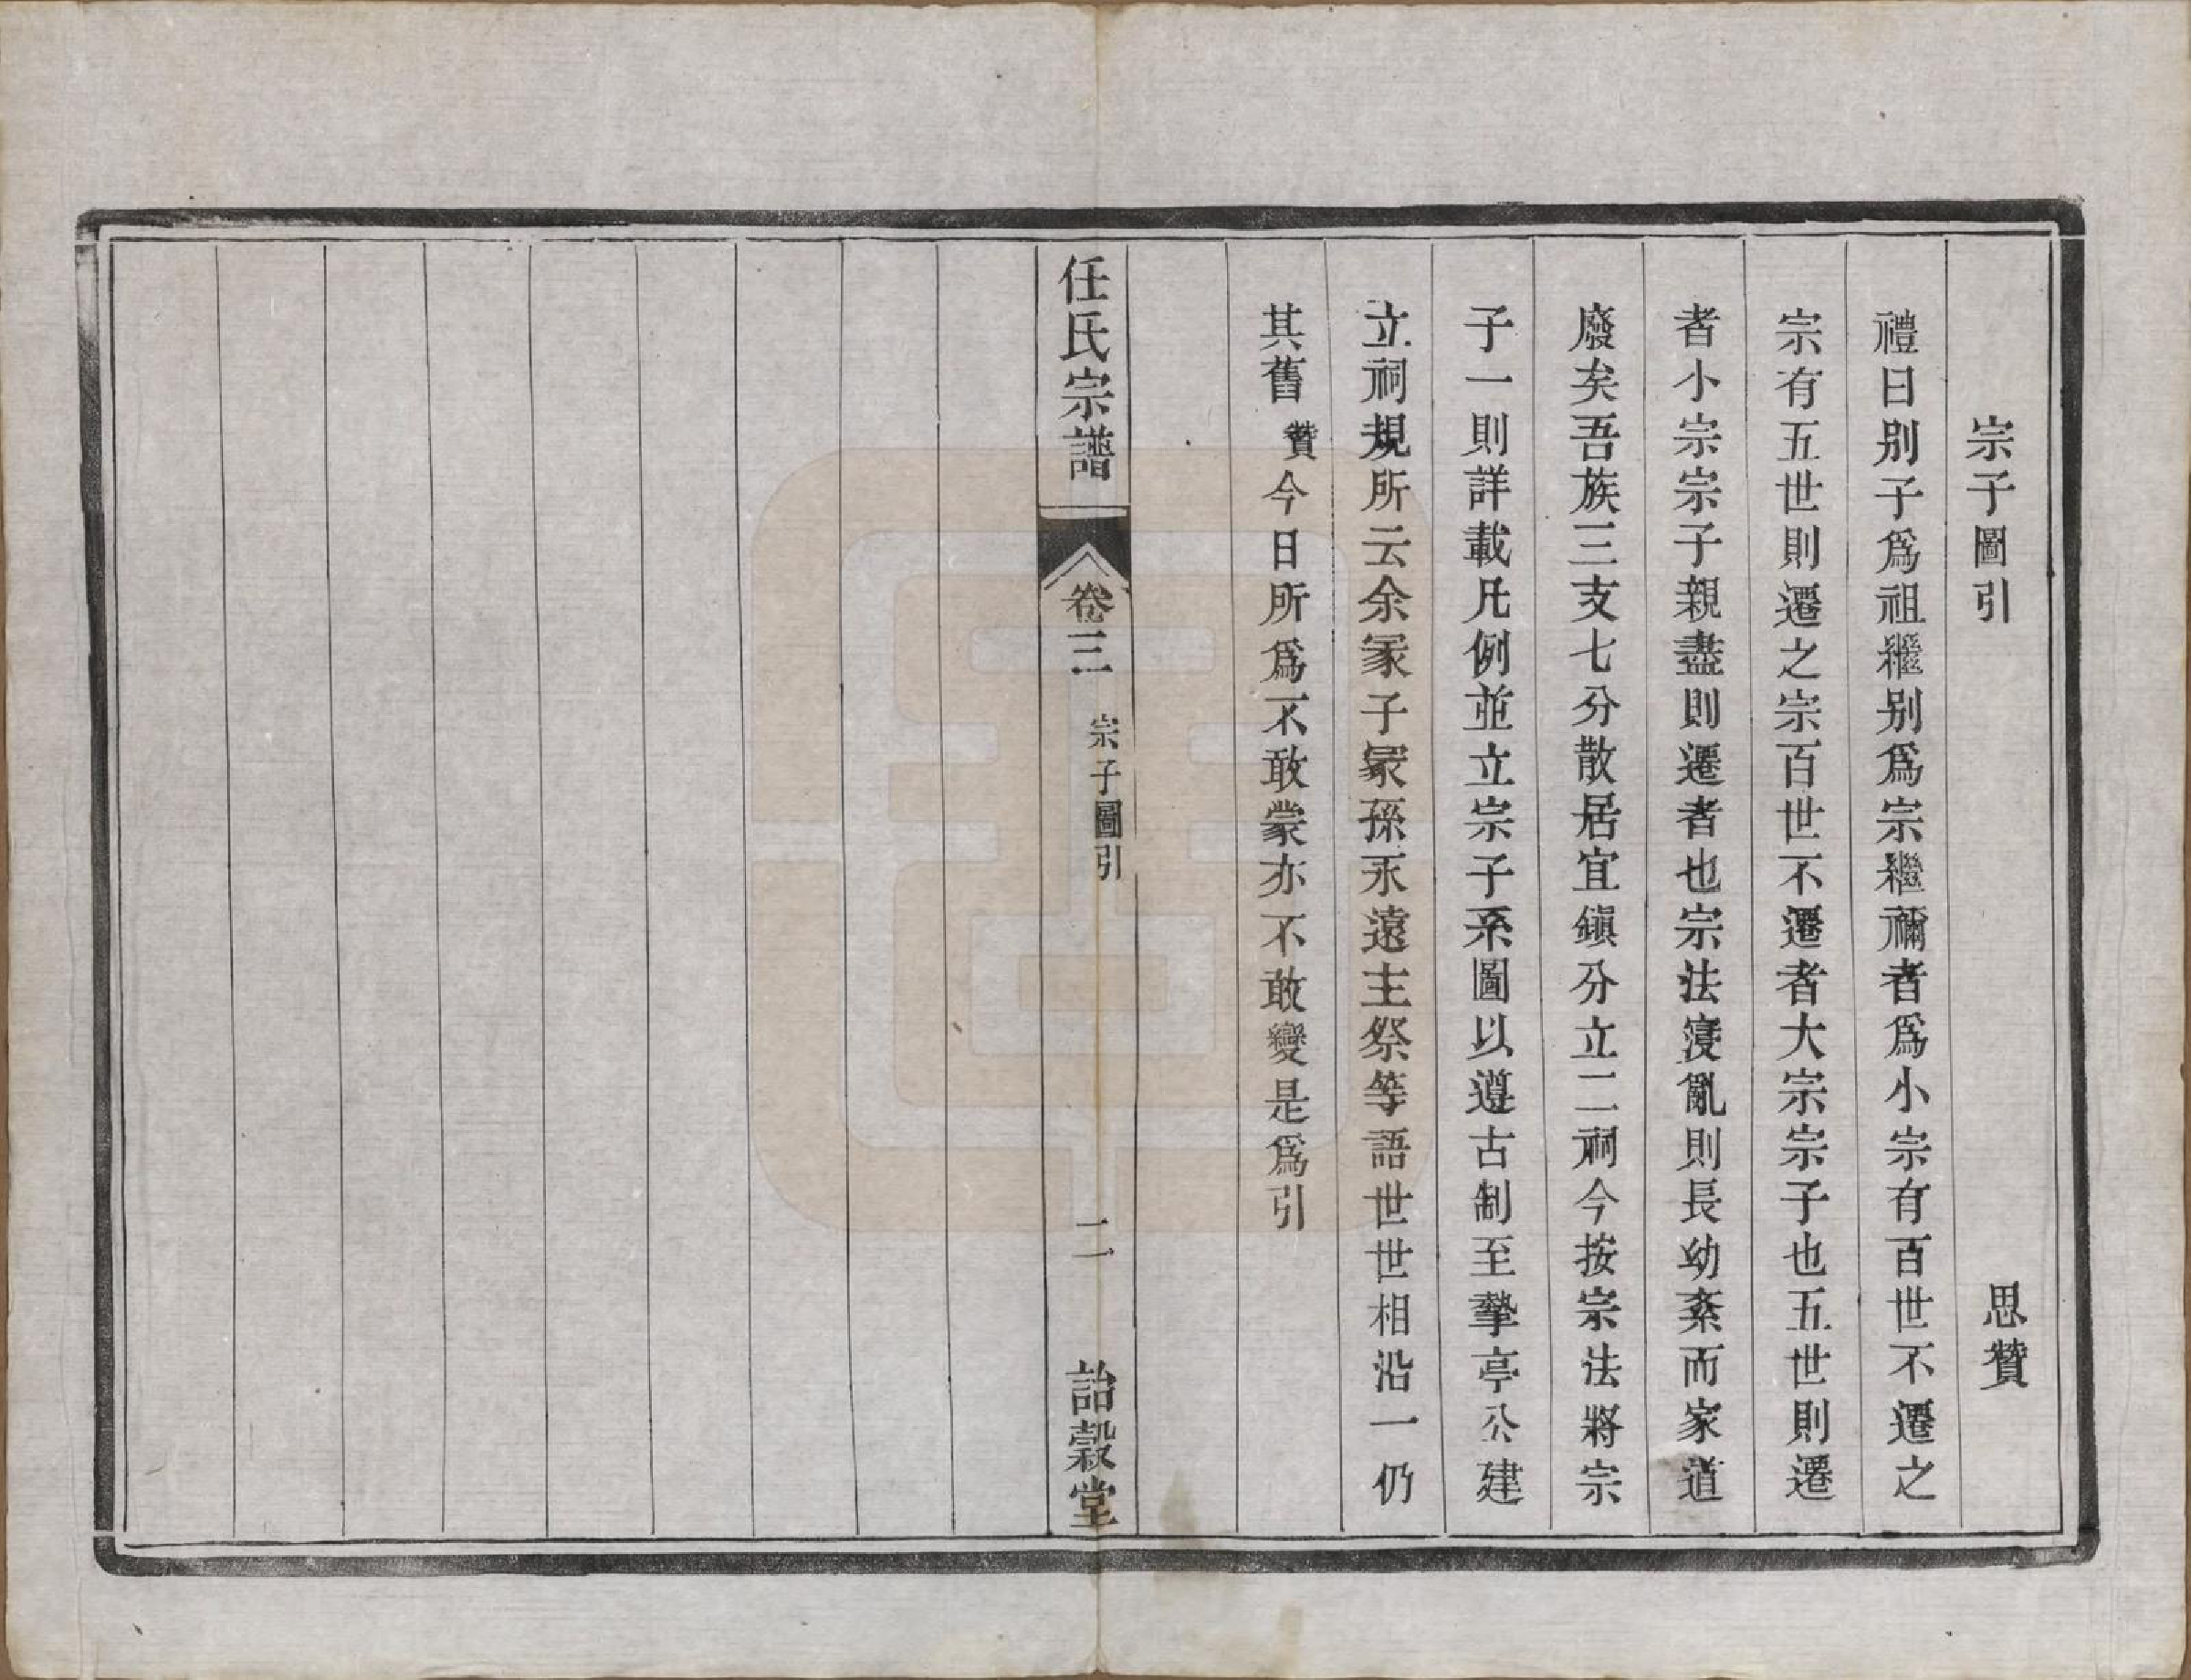 宗子圖引 思贊
禮曰别子爲祖繼别爲宗繼禰者爲小宗有百世不遷之
宗有五世則遷之宗百世不遷者大宗宗子也五世則遷
者小宗宗子親盡則遷者也宗法寖亂則長幼紊而家道
廢矣吾族三支七分散居宜鎮分立二祠今按宗法將宗
子一則詳載凡例並立宗子系圖以遵古制至摯亭公建
立祠規所云余冢子冢孫永遠主祭等語世世相沿一仍
其舊贊今日所爲不敢蒙亦不敢變是爲引
任氏宗譜 卷三 宗子圖引 二 詒穀堂